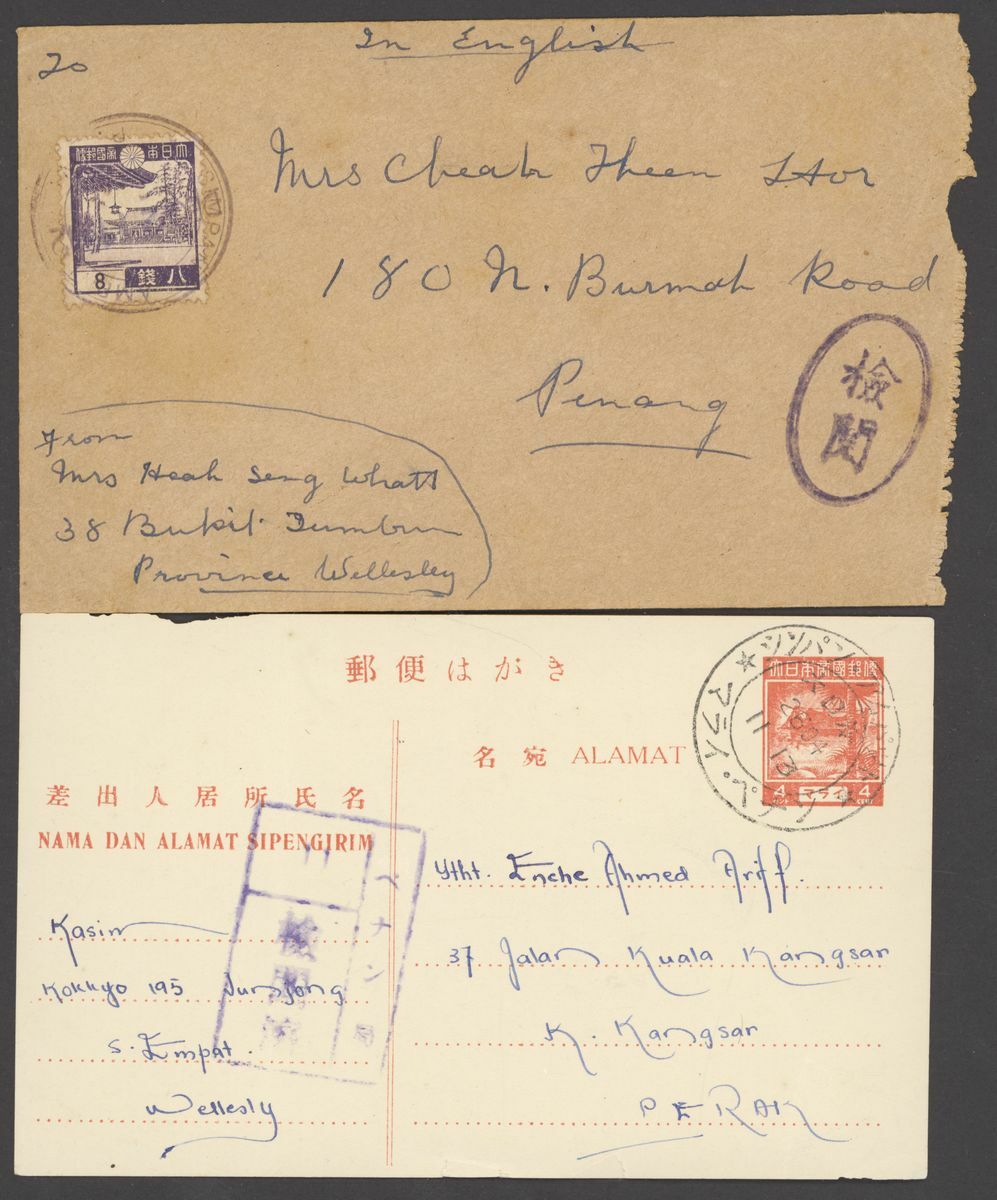 In English
To
Mrs Cheah Theen Hor
180 N. Burmah Road
Penang
大日本帝國郵便
8 八錢
檢閱
From
Mrs Heah Seng Whatt
38 Bukit Tumbun
Province Wellesley
郵便はがき
大日本帝國郵便
4 マライ 4
名宛 ALAMAT
差出人居所氏名
NAMA DAN ALAMAT SIPENGIRIM
Ytht. Enche Ahmed Ariff.
37 Jalan Kuala Kangsar
K. Kangsar
PERAK
Kasim
Kokkyo 195 Junjong
S. Empat.
Wellesly
検閲済